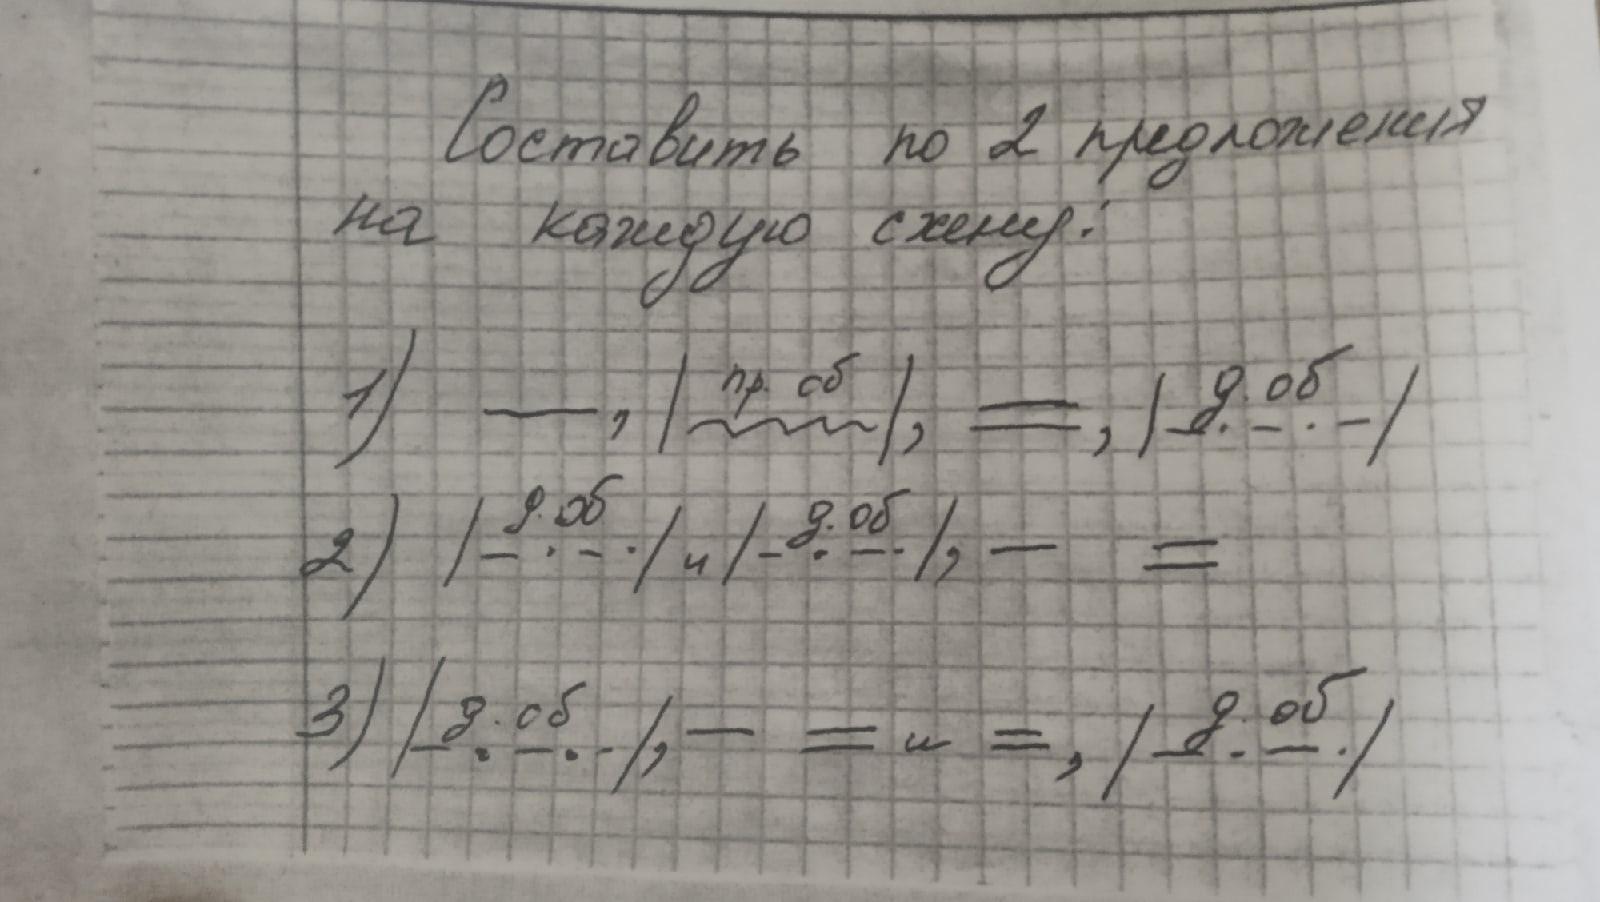 Составить по 2 предложения
на каждую схему:
1) —, |пр. об|, =, |д. об|
2) |д. об| и |д. об|, — =
3) |д. об|, — = и =, |д. об|